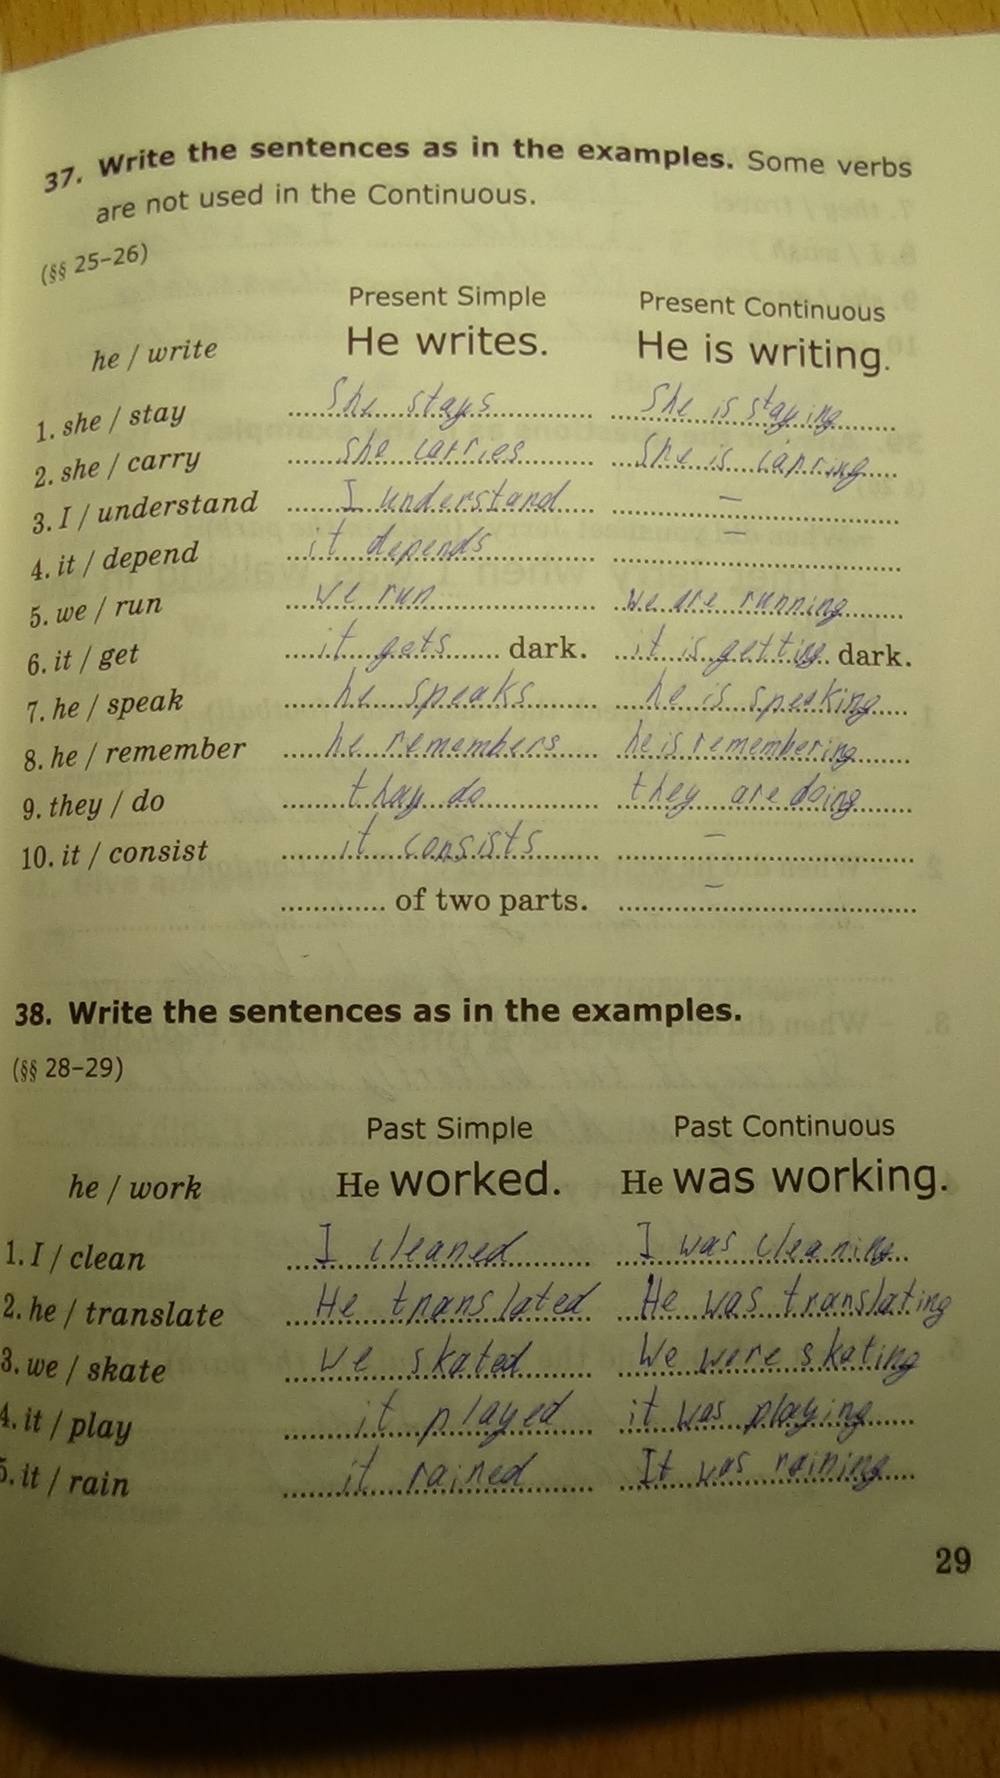 37. Write the sentences as in the examples. Some verbs
are not used in the Continuous.
(§§ 25–26)
Present Simple Present Continuous
he / write He writes. He is writing.
1. she / stay She stays She is staying
2. she / carry She carries She is carring
3. I / understand I understand –
4. it / depend it depends –
5. we / run we run we are running
6. it / get it gets dark. it is getting dark.
7. he / speak he speaks he is speaking
8. he / remember he remembers he is remembering
9. they / do thay do they are doing
10. it / consist it consists –
of two parts. –
38. Write the sentences as in the examples.
(§§ 28–29)
Past Simple Past Continuous
he / work He worked. He was working.
1. I / clean I cleaned I was cleaning
2. he / translate He translated He was translating
3. we / skate we skated We were skating
4. it / play it played it was playing
5. it / rain it rained It was raining
29